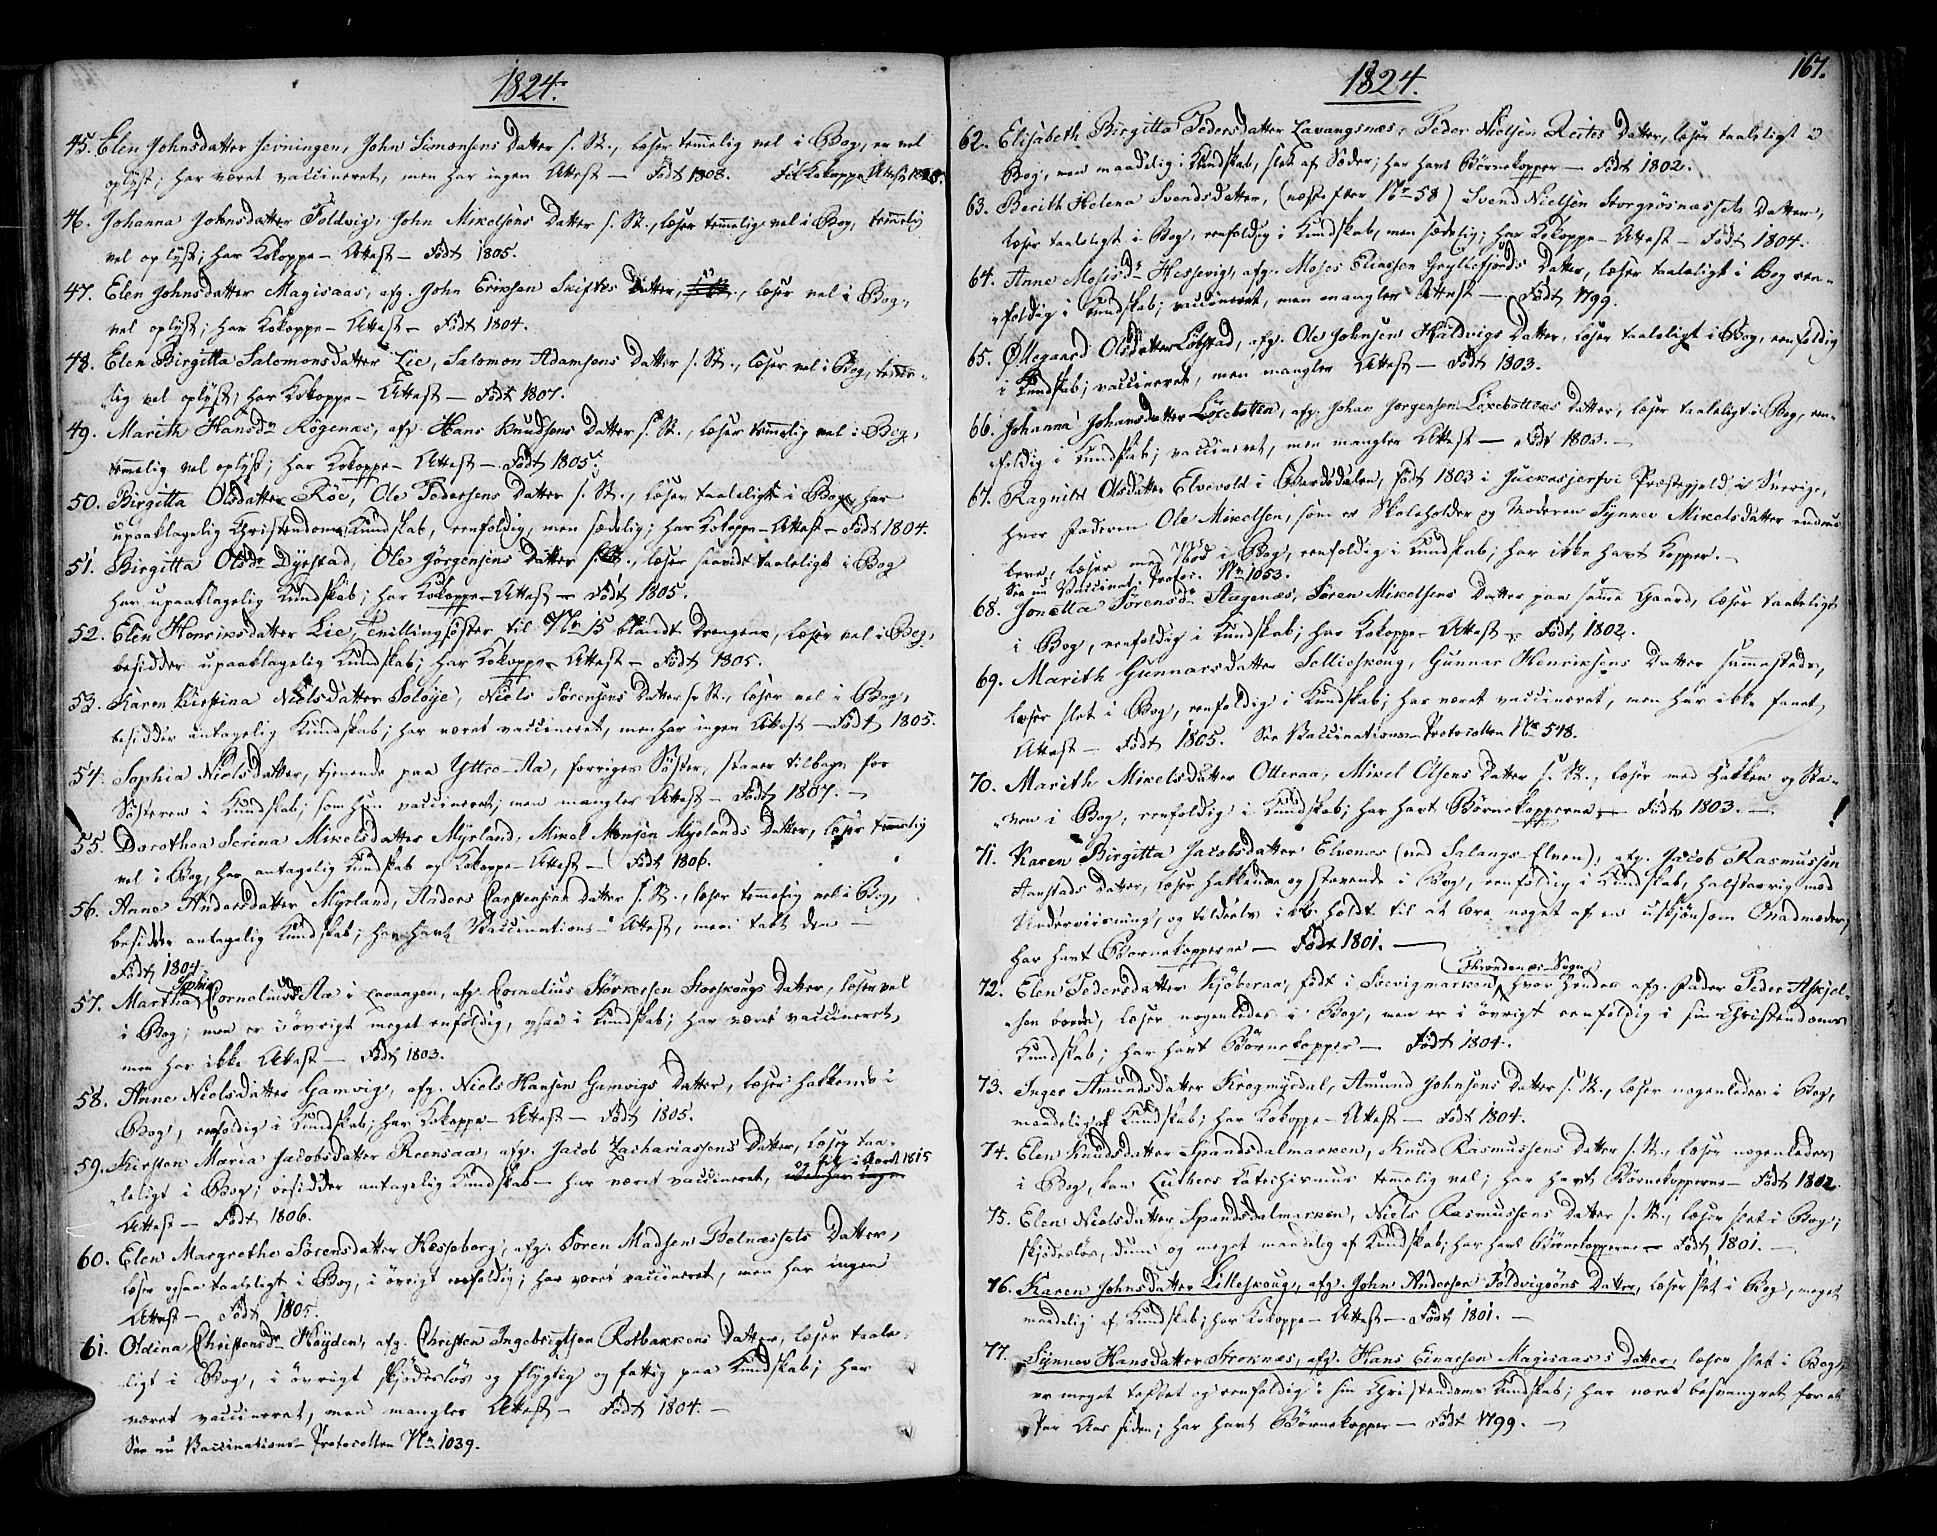 1824.
45. Elen Johnsdatter Jevningen, John Simonsens Datter s. St., læser temmelig vel i Bog, er vel
oplyst; har været vaccineret, men har ingen Attest — Født 1808. Fik Kokoppe Attest
46. Johanna Johnsdatter Foldvig, John Mikelsens Datter s. St., læser temmelig vel i Bog, temmelig
vel oplyst; har Kokoppe-Attest — Født 1805.
47. Elen Johnsdatter Magisaas, afg. John Eriksen Skiftes Datter, læser vel i Bog,
vel oplyst; har Kokoppe-Attest — Født 1804.
48. Elen Birgitta Salomonsdatter Lie, Salomon Adamsens Datter s. St., læser vel i Bog, temme-
lig vel oplyst; har Kokoppe-Attest — Født 1807.
49. Marith Hansdr Røgenas, afg. Hans Knudsens Datter s. St., læser temmelig vel i Bog,
temmelig vel oplyst; har Kokoppe-Attest — Født 1805.
50. Birgitta Olsdatter Röe, Ole Pedersens Datter s. St., læser taaleligt i Bog, har
upaaklagelig Christendoms Kundskab, eenfoldig, men sædelig; har Kokoppe-Attest — Født 1804.
51. Birgitta Olsdr Dyrstad, Ole Jörgensens Datter s. St., læser saavidt taaleligt i Bog
har upaaklagelig Kundskab; har Kokoppe-Attest — Født 1805.
52. Elen Henriksdatter Lie, Tvillingsøster til No 15 blandt Drengene, læser vel i Bog,
besidder upaaklagelig Kundskab; har Kokoppe-Attest — Født 1805.
53. Karen Kirstina Nielsdatter Soløye, Niels Sørensens Datter s. St., læser vel i Bog,
besidder antagelig Kundskab; har været vaccineret, men har ingen Attest — Født 1805.
54. Sophia Nielsdatter, tjenende paa Yttre-Aa, forriges Søster, staaer tilbage for
Søsteren i Kundskab; som hun vaccineret, men mangler Attest — Født 1807. —
55. Dorothea Serina Mikelsdatter Myrland, Mikel Monsen Myrlands Datter, læser temmelig
vel i Bog, har antagelig Kundskab og Kokoppe-Attest — Født 1806.
56. Anne Andersdatter Myrland, Anders Carstensens Datter s. St., læser temmelig vel i Bog,
besidder antagelig Kundskab; har havt Vaccinations-Attest, men tabt den —
Født 1804.
Sophia
57. Martha Corneliusdr Aa i Lavangen, afg. Cornelius Størkersen Storskougs Datter, læser vel
i Bog; men er i övrigt meget enfoldig, ogsaa i Kundskab; har været vaccineret,
men har ikke Attest — Født 1803.
58. Anne Nielsdatter Gamvig, afg. Niels Hansen Gamvigs Datter, læser hakkende i
Bog, eenfoldig i Kundskab; har Kokoppe-Attest — Født 1805.
59. Kirsten Maria Jacobsdatter Roensaa, afg. Jacob Zachariassens Datter, læser taa-
leligt i Bog; besidder antagelig Kundskab — har været vaccineret, og fik i 1815
Attest — Født 1806.
60. Elen Margrethe Sörensdatter Hesseberg, afg. Sören Madsen Belnæssets Datter,
læser ogsaa taaleligt i Bog, i övrigt eenfoldig; har været vaccineret, men har ingen
Attest — Født 1805.
61. Oldina Christensdr Høyden, afg. Christen Ingebrigtsen Rotbakkens Datter, læser taale-
ligt i Bog, i övrigt skjødeslös og flygtig og fattig paa Kundskab; har
været vaccineret, men mangler Attest — Født 1804. —
See nu Vaccinations-Protocollen No 1039.
1824.
167.
62. Elisabeth Birgitta Pedersdatter Lavangsnæs, Peder Nielsen Reites Datter, læser taaleligt i
Bog, men maadelig i Kundskab, slet af Sæder; har havt Børnekopper — Født 1802.
63. Berith Helena Svendsdatter, (næst efter No 58) Svend Nielsen Storgrösnæssets Datter,
læser taaleligt i Bog, eenfoldig i Kundskab, men sædelig; har Kokoppe-Attest — Født 1804.
64. Anne Mosesdr Hessevig, afg. Moses Eliassen Gryllefjords Datter, læser taaleligt i Bog een-
foldig i Kundskab; vaccineret, men mangler Attest — Født 1799.
65. Ollegaard Olsdatter Löbstad, afg. Ole Johnsen Haldvigs Datter, læser taaleligt i Bog, eenfoldig
i Kundskab; vaccineret, men mangler Attest — Født 1803.
66. Johanna Johansdatter Löxebotten, afg. Johan Jørgensen Löxebottens Datter, læser taaleligt i Bog, een-
foldig i Kundskab; vaccineret, men mangler Attest — Født 1803. —
67. Ragnild Olsdatter Elvevold i Bardodalen, født 1803 i Juckasjerfvi Præstegjeld i Sverige,
hvor Faderen Ole Mikelsen, som er Skoleholder og Moderen Synnev Mikelsdatter endnu
leve, læser med Nød i Bog, eenfoldig i Kundskab; har ikke havt Kopper. —
See nu Vaccinat. Protoc. No 1053.
68. Jonetta Sørensdr Aagenæs, Søren Mikelsens Datter paa samme Gaard, læser taaleligt
i Bog, eenfoldig i Kundskab; har Kokoppe-Attest — Født 1802.
69. Marith Gunnarsdatter Selljeskoug, Gunnar Henriksens Datter sammesteds,
læser slet i Bog, eenfoldig i Kundskab; har været vaccineret, men har ikke faaet
Attest — Født 1805. See Vaccinations-Protocollen No 548.
70. Marith Mikelsdatter Otteraa, Mikel Olsens Datter s. St., læser med Hakken og Sta-
ven i Bog, eenfoldig i Kundskab; har havt Børnekopperne — Født 1803. —
71. Karen Birgitta Jacobsdatter Elvenes (ved Salangs-Elven), afg. Jacob Rasmussen
Aanstads Datter, læser hakkende og stavende i Bog, eenfoldig i Kundskab, halstarrig mod
Underviisning, og tildeels ikke holdt til at lære noget af en uskjönsom Madmoder,
har havt Børnekopperne — Født 1801. —
Throndenæs-Sogn
72. Elen Pedersdatter Kjöberaa, født i Soevigmarken, hvor hendes afg. Fader Peder Askjel-
sen boede, læser nogenledes i Bog, men er i övrigt eenfoldig i sin Christendoms
Kundskab; har havt Børnekopper — Født 1804.
73. Inger Amundsdatter Krogmyrdal, Amund Johnsens Datter s. St., læser nogenledes i Bog,
maadelig af Kundskab; har Kokoppe-Attest — Født 1804.
74. Elen Knudsdatter Spandsdalmarken, Knud Rasmussens Datter s. St., læser nogenledes
i Bog, kan Luthers Catechismus temmelig vel; har havt Børnekopperne — Født 1802.
75. Elen Nielsdatter Spandsdalmarken, Niels Rasmussens Datter s. St., læser slet i Bog;
skjødesløs, dum og meget maadelig af Kundskab; har havt Børnekopperne — Født 1801. —
76. Karen Johnsdatter Lilleskoug, afg. John Andersen Foldvigeöns Datter, læser slet i Bog, meget
maadelig af Kundskab; har Kokoppe-Attest — Født 1801. —
77. Synnev Hansdatter Stroknæs, afg. Hans Einarsen Magisaas's Datter, læser slet i Bog,
er meget og eenfoldig i sin Christendoms Kundskab; har været besvangret for et
Par Aar siden; har havt Børnekopper — Født 1799. —